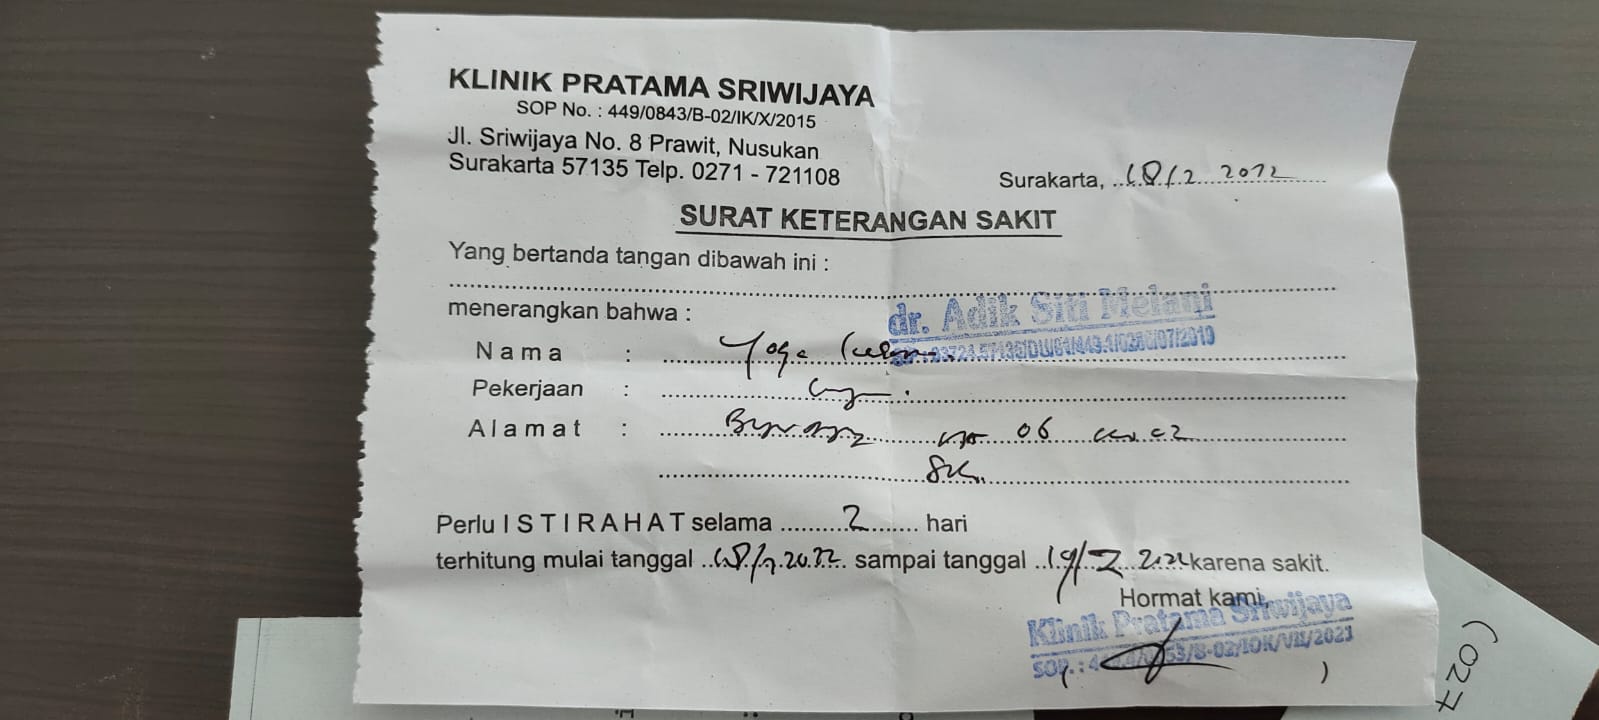 KLINIK PRATAMA SRIWIJAYA
SOP No. : 449/0843/B-02/IK/X/2015
Jl. Sriwijaya No. 8 Prawit, Nusukan
Surakarta 57135 Telp. 0271 - 721108
Surakarta, 18/2 2022
SURAT KETERANGAN SAKIT
Yang bertanda tangan dibawah ini :
dr. Adik Siti Melani
menerangkan bahwa :
Nama : Yoga
Pekerjaan :
Alamat : 06
Perlu ISTIRAHAT selama 2 hari
terhitung mulai tanggal 18/2 2022 sampai tanggal 19/2 2022 karena sakit.
Hormat kami,
Klinik Pratama Sriwijaya
SOP. : /B-02/IOK/VII/2021
( )
(027